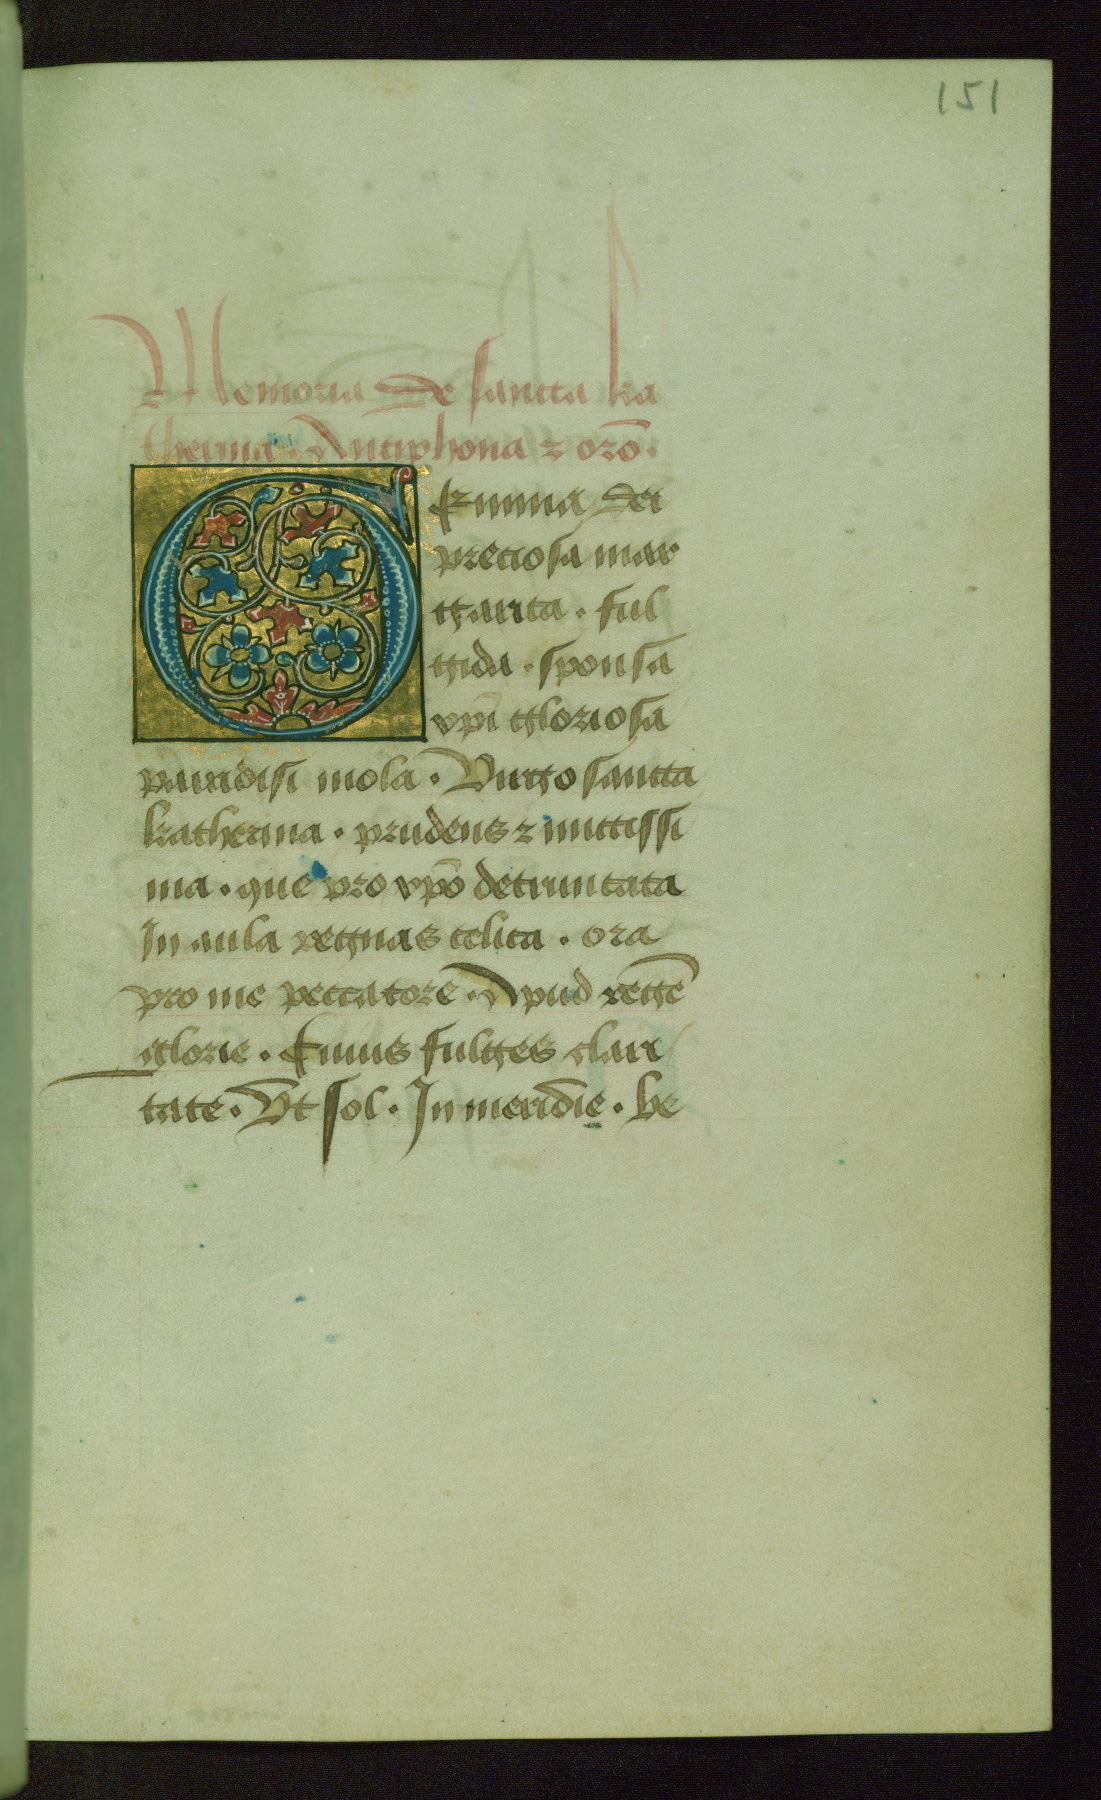 151
Memoria de sancta ka
therina. Antiphona ⁊ orō.
GEmma dei
preciosa mar
garita. ful
gida. sponsa
xp̄i gloriosa
paradisi viola. Virgo sancta
katherina. prudens ⁊ mitissi
ma. que pro xp̄o detruncata
In aula regnas celica. ora
pro me peccatore. Apud regē
glorie. Cuius fulges clari
tate. Vt sol. In meridie. be